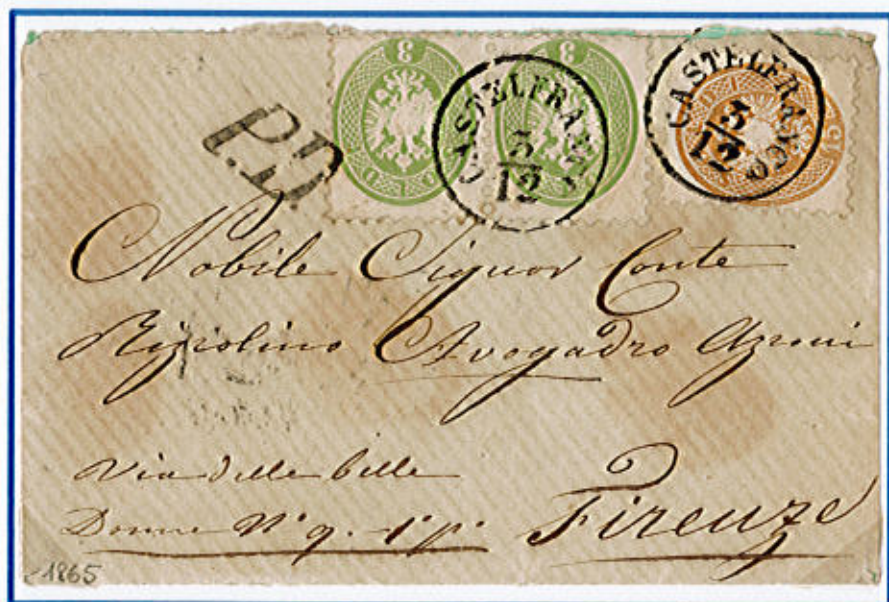 3 3 15
SOLDI
CASTELFRANCO
3/12
CASTELFRANCO
3/12
P.D.
Nobile Signor Conte
Avogadro Azzoni
Via delle belle
Donne N° 9. 1° p°
Firenze
1865